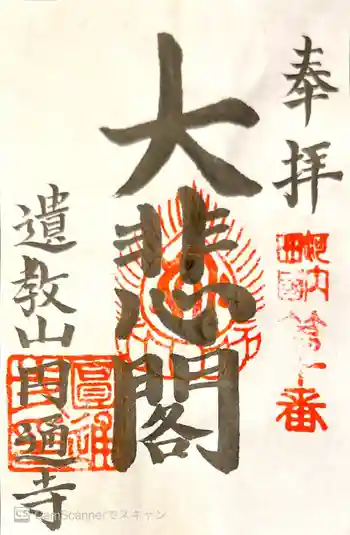 奉拝
大悲閣
遺教山円通寺
圓通
番
CamScannerでスキャン